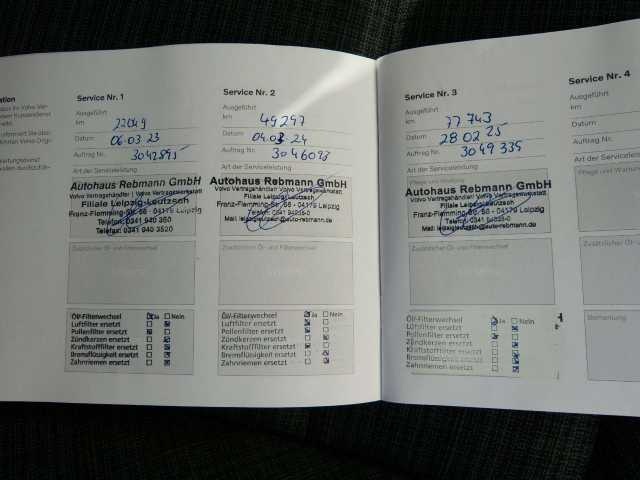 Service Nr. 1
Ausgeführt
km 22049
Datum 06.03.23
Auftrag Nr. 3042895
Art der Serviceleistung
Autohaus Rebmann GmbH
Volvo Vertragshändler | Volvo Vertragswerkstatt
Filiale Leipzig-Leutzsch
Franz-Flemming-Str. 66 - 04179 Leipzig
Telefon: 0341 940 350
Telefax: 0341 940 3520
Zusätzlicher Öl- und Filterwechsel
Öl/-Filterwechsel Ja Nein
Luftfilter ersetzt
Pollenfilter ersetzt
Zündkerzen ersetzt
Kraftstofffilter ersetzt
Bremsflüssigkeit ersetzt
Zahnriemen ersetzt
Service Nr. 2
Ausgeführt
km 49297
Datum 04.03.24
Auftrag Nr. 3046093
Art der Serviceleistung
Autohaus Rebmann GmbH
Volvo Vertragshändler | Volvo Vertragswerkstatt
Filiale Leipzig-Leutzsch
Franz-Flemming-Str. 66 - 04179 Leipzig
Zusätzlicher Öl- und Filterwechsel
Öl/-Filterwechsel Ja Nein
Luftfilter ersetzt
Pollenfilter ersetzt
Zündkerzen ersetzt
Kraftstofffilter ersetzt
Bremsflüssigkeit ersetzt
Zahnriemen ersetzt
Service Nr. 3
Ausgeführt
km 77.743
Datum 28 02 25
Auftrag Nr. 3049335
Art der Serviceleistung
Pflege und Wartung
Autohaus Rebmann GmbH
Volvo Vertragshändler | Volvo Vertragswerkstatt
Filiale Leipzig-Leutzsch
Franz-Flemming-Str. 66 - 04179 Leipzig
Zusätzlicher Öl- und Filterwechsel
Öl/-Filterwechsel Ja Nein
Luftfilter ersetzt
Pollenfilter ersetzt
Zündkerzen ersetzt
Kraftstofffilter ersetzt
Bremsflüssigkeit ersetzt
Zahnriemen ersetzt
Service Nr. 4
Ausgeführt
km
Datum
Auftrag Nr.
Art der Serviceleistung
Pflege und Wartung
Zusätzlicher Öl-
Bemerkung